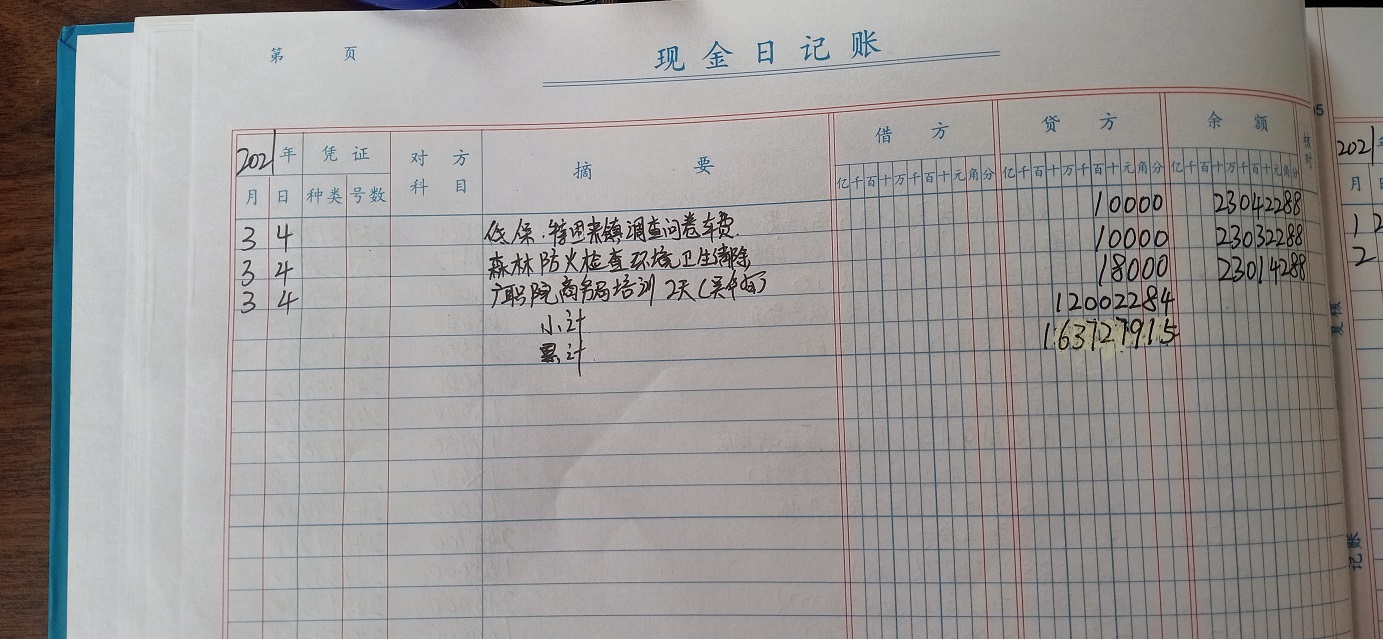 第 页
现金日记账
2021年 凭证 对方科目 摘要 借方 贷方 余额 核对
月 日 种类 号数 亿千百十万千百十元角分 亿千百十万千百十元角分 亿千百十万千百十元角分
3 4 低保.特困来镇调查问卷车费 10000 23042288
3 4 森林防火检查环境卫生清除 10000 23032288
3 4 广职院商务局培训2天 18000 23014288
小计 12002284
累计 163727915
2021年
月
1 2
2
复核
记账